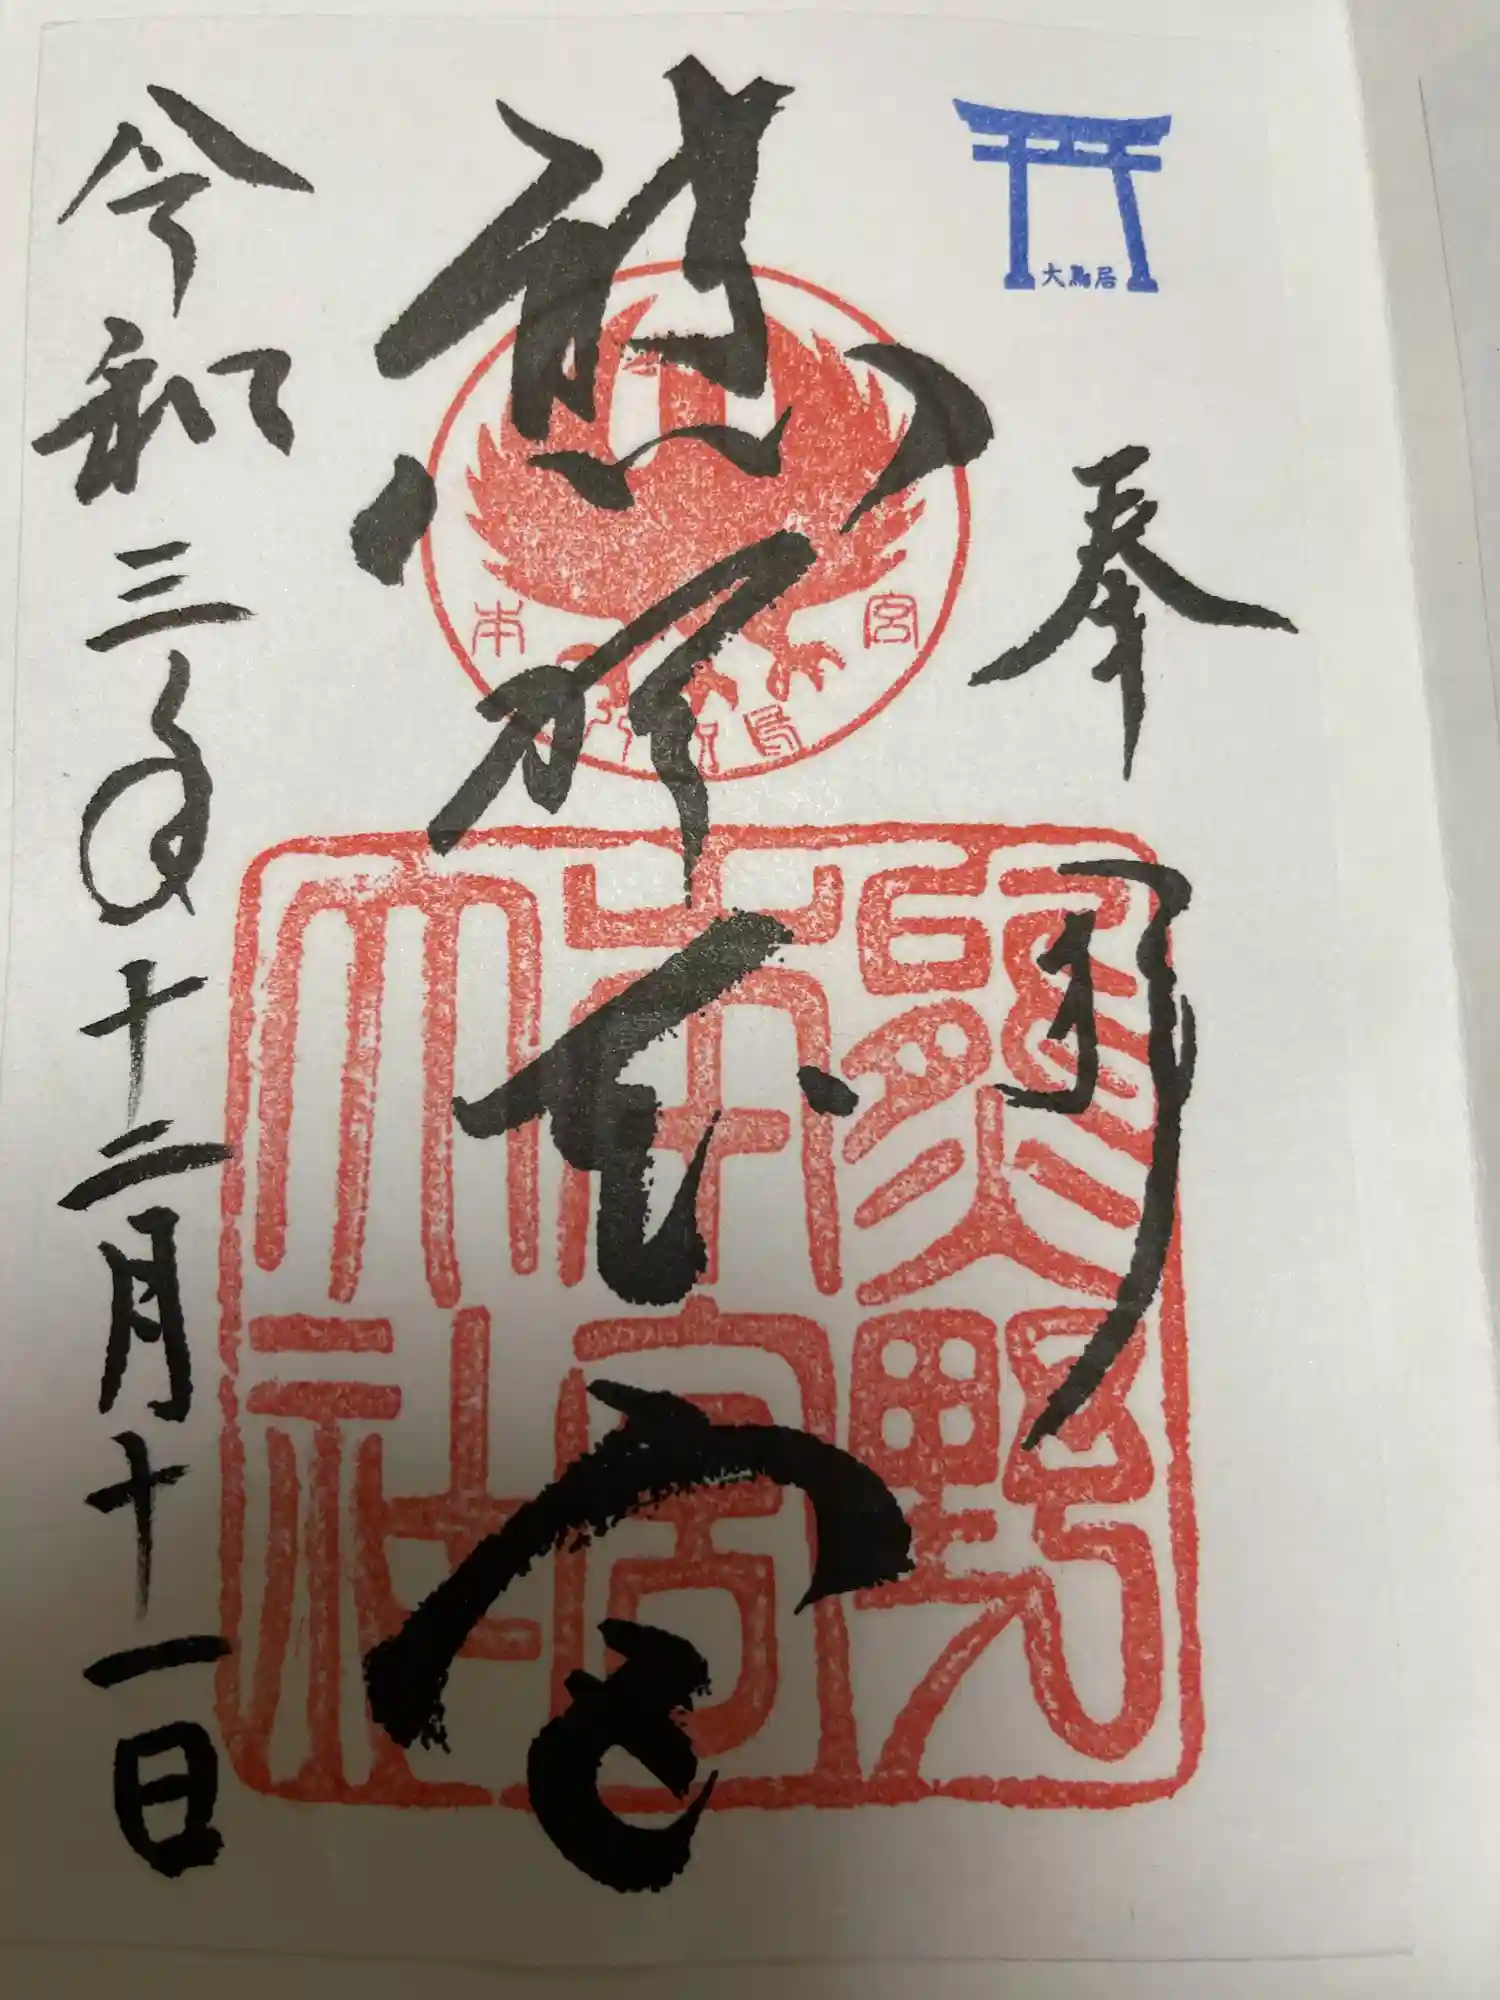 大鳥居
奉拝
熊野本宮
本宮
熊野本宮大社
令和三年十二月十一日